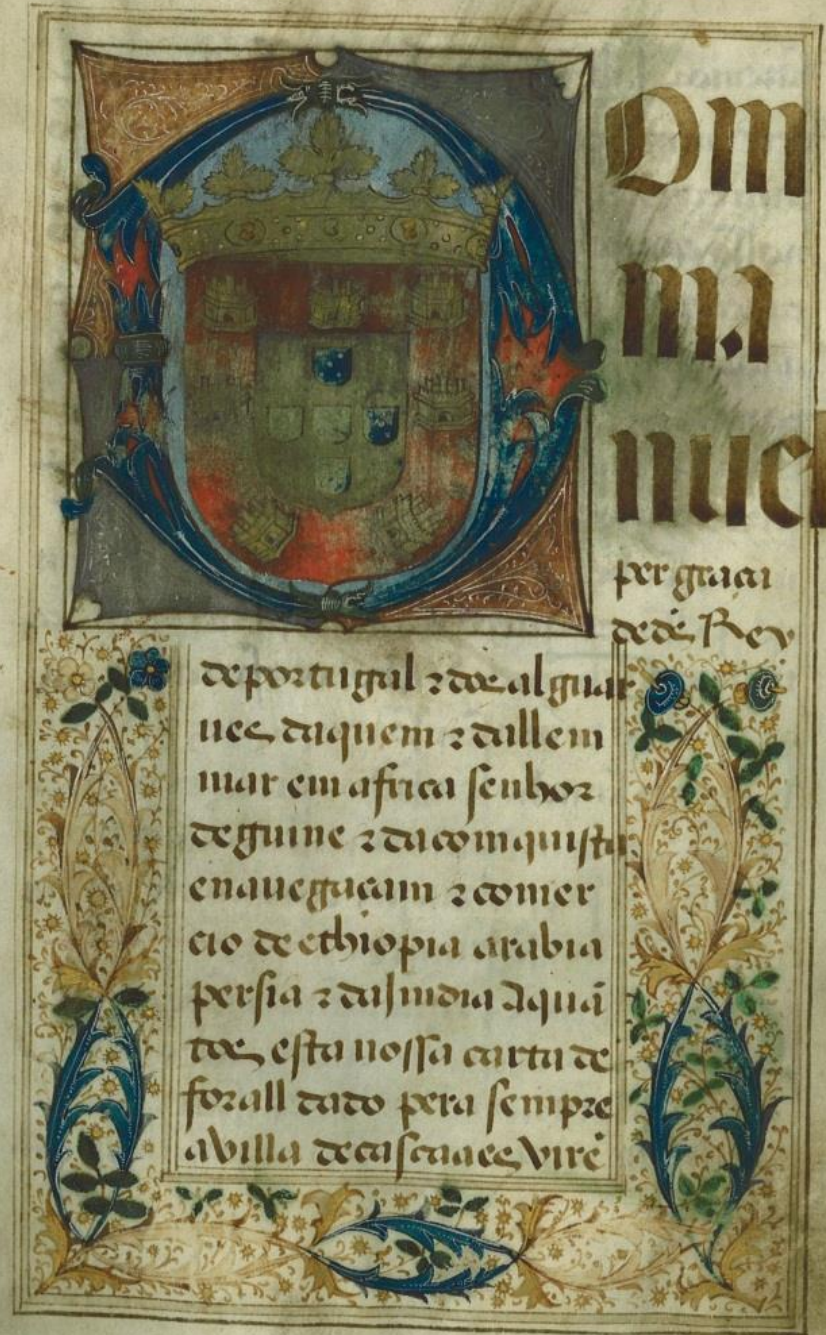 Dom
ma
nuel
per graça
de dẽs Rey
de portugal ⁊ dos alguar
ues daquem ⁊ dallem
mar em africa senhor
de guine ⁊ da comquista
e nauegaçam ⁊ comer
cio de ethiopia arabia
persia ⁊ da India A quã
tos esta nossa carta de
forall dado pera sempre
a villa de cascaaes virẽ